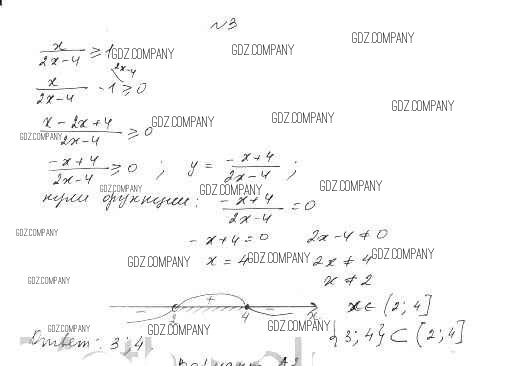 N3
x/(2x-4) ≥ 1 GDZ.COMPANY GDZ.COMPANY GDZ.COMPANY
x/(2x-4) - 1 \ 2x-4 ≥ 0
(x - 2x + 4)/(2x-4) ≥ 0 GDZ.COMPANY GDZ.COMPANY GDZ.COMPANY GDZ.COMPANY
(-x+4)/(2x-4) ≥ 0 ; y = (-x+4)/(2x-4) ;
GDZ.COMPANY GDZ.COMPANY GDZ.COMPANY
нули функции: (-x+4)/(2x-4) = 0
GDZ.COMPANY
-x+4=0 2x-4 ≠ 0
GDZ.COMPANY x = 4 GDZ.COMPANY 2x ≠ 4 GDZ.COMPANY
GDZ.COMPANY x ≠ 2
- 2 + 4 - x x ∈ (2; 4]
GDZ.COMPANY GDZ.COMPANY GDZ.COMPANY {3; 4} ⊂ (2; 4]
Ответ: 3; 4.